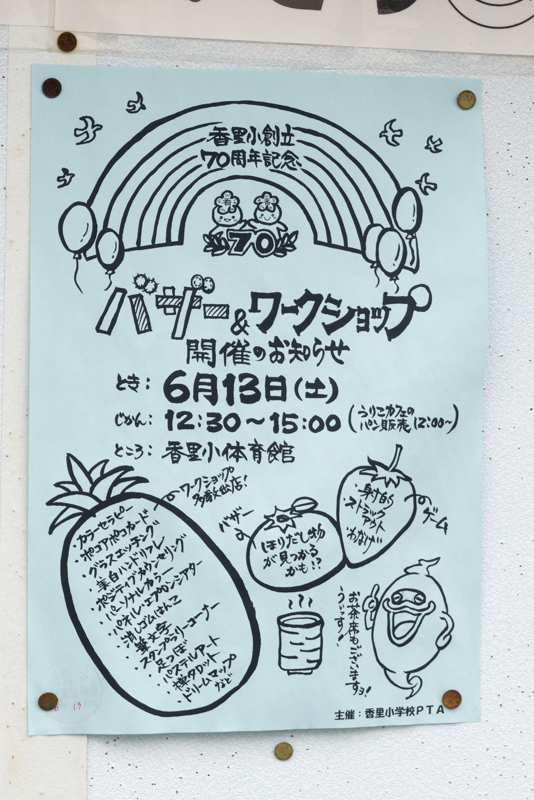 香里小創立
70周年記念
70
バザー&ワークショップ
開催のお知らせ
とき: 6月13日(土)
じかん: 12:30〜15:00 (うりこカフェの パン販売 12:00〜)
ところ: 香里小体育館
ワークショップ
多数出店!
・カラーセラピー
・ポコアポコカード
・グラスエッチング
・美白ハンドリフレ
・ポジティブカウンセリング
・パーソナルカラー
・パネル・エプロンシアター
・消しゴムはんこ
・筆文字
・スタンプラリーコーナー
・足つぼ
・パステルアート
・禅タロット
・ドリームマップ
など
バザー
ほりだし物
が見つかる
かも!?
ゲーム
・射的
・ストラック
アウト
・わなげ
お茶席もございますヨ!
うぃっす!
主催:香里小学校PTA